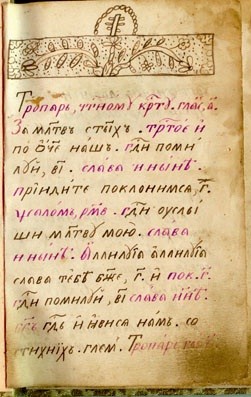 Тропарь, чтному крⷭ҇ту. гла́с, а҃.
За мл҃твъ ст҃ы́хъ. трⷭ҇то́е и҆
по ѻ҆́ч҃е на́шъ. гдⷭ҇и поми́
луй, в҃і. сла́ва и҆ ны́нѣ.
прїиди́те поклони́мсѧ, г҃.
ѱало́мъ, рм҃в. гдⷭ҇и ᲂу҆слы́
ши мл҃тву мою̀. сла́ва
и҆ ны́нѣ. а҆ллилꙋ́їа а҆ллилꙋ́їа
сла́ва тебѣ̀ бж҃е, г҃. и҆ пок. г҃.
гдⷭ҇и поми́луй, в҃і сла́ва и҆ нн҃ѣ.
бг҃ъ гдⷭ҇ь и҆ ꙗ҆ви́сѧ на́мъ. со
стихи́хъ. гле́м. Тропарь